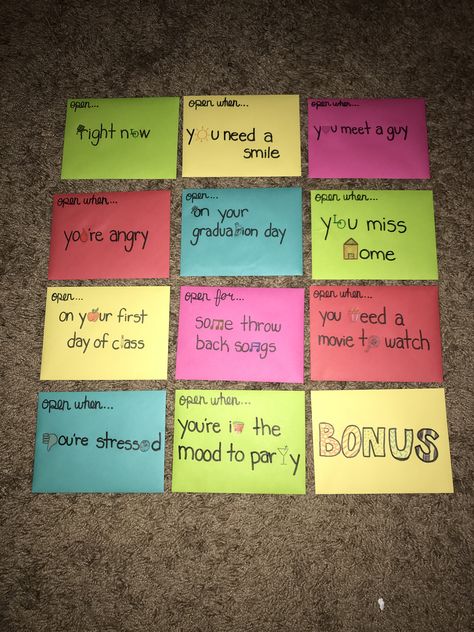 open...
right now
open when...
you need a
smile
open when...
you meet a guy
open when...
you're angry
open...
on your
graduation day
open when...
you miss
home
open...
on your first
day of class
open for...
some throw
back songs
open when...
you need a
movie to watch
open when...
you're stressed
open when...
you're in the
mood to party
BONUS